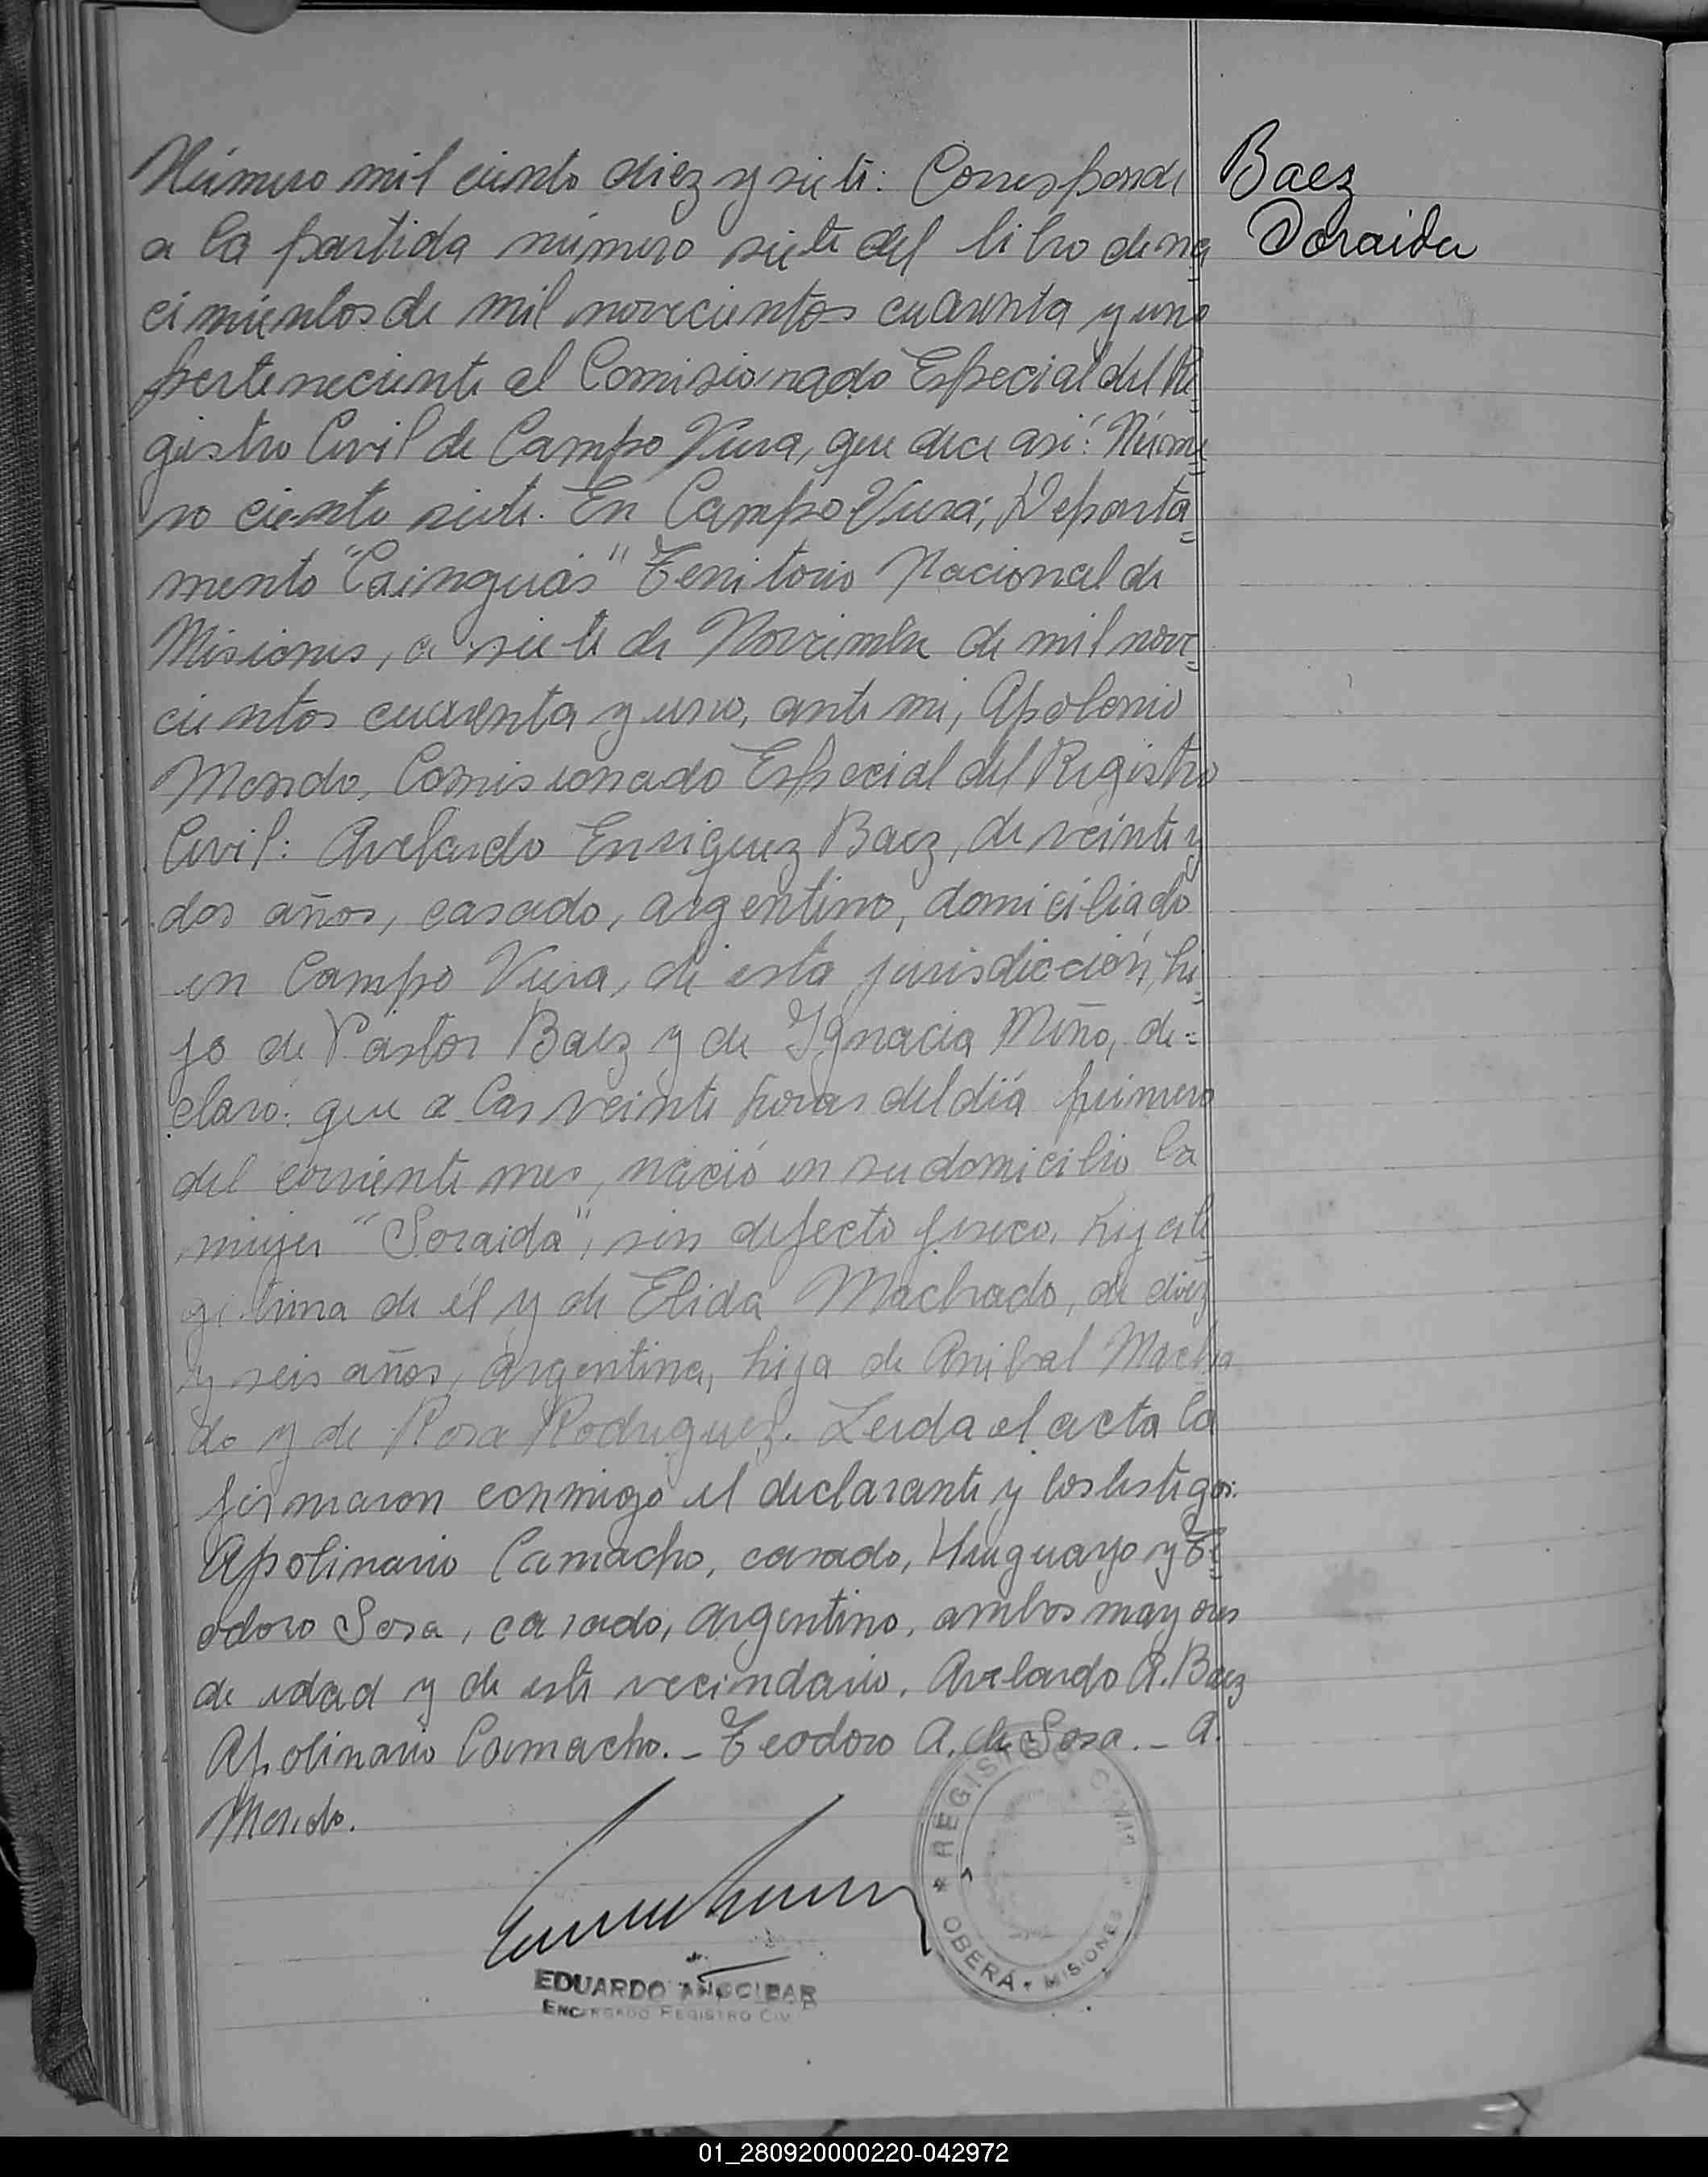 Número mil ciento diez y siete: Corresponde
a la partida número siete del libro de na
cimientos de mil novecientos cuarenta y uno
perteneciente al Comisionado Especial del Re=
gistro Civil de Campo Viera, que dice así: Núme=
ro ciento siete. En Campo Viera, Departa=
mento "Cainguás" Territorio Nacional de
Misiones, a siete de Noviembre de mil nove=
cientos cuarenta y uno, ante mi, Apolonio
Mendo, Comisionado Especial del Registro
Civil: Avelardo Enriquez Baez, de veinte y
dos años, casado, argentino, domiciliado
en Campo Viera, de esta jurisdicción, hi=
jo de Pastor Baez y de Ignacia Miño, de=
claró: que a las veinte horas del día primero
del corriente mes, nació en su domicilio la
mujer "Soraida", sin defecto fisico, hija le=
gitima de él y de Elida Machado, de diez
y seis años, argentina, hija de Anibal Macha
do y de Rosa Rodriguez. Leida el acta la
firmaron conmigo el declarante y los testigos:
Apolinario Camacho, casado, Uruguayo y Te=
odoro Sosa, casado, argentino, ambos mayores
de edad y de este vecindario. Avelardo A. Baez
Apolinario Camacho. _ Teodoro A. de Sosa. _ A.
Mendo.
Baez
Soraida
REGISTRO CIVIL
OBERÁ * MISIONES
EDUARDO ANOCIBAR
ENCARGADO REGISTRO CIVIL
01_280920000220-042972